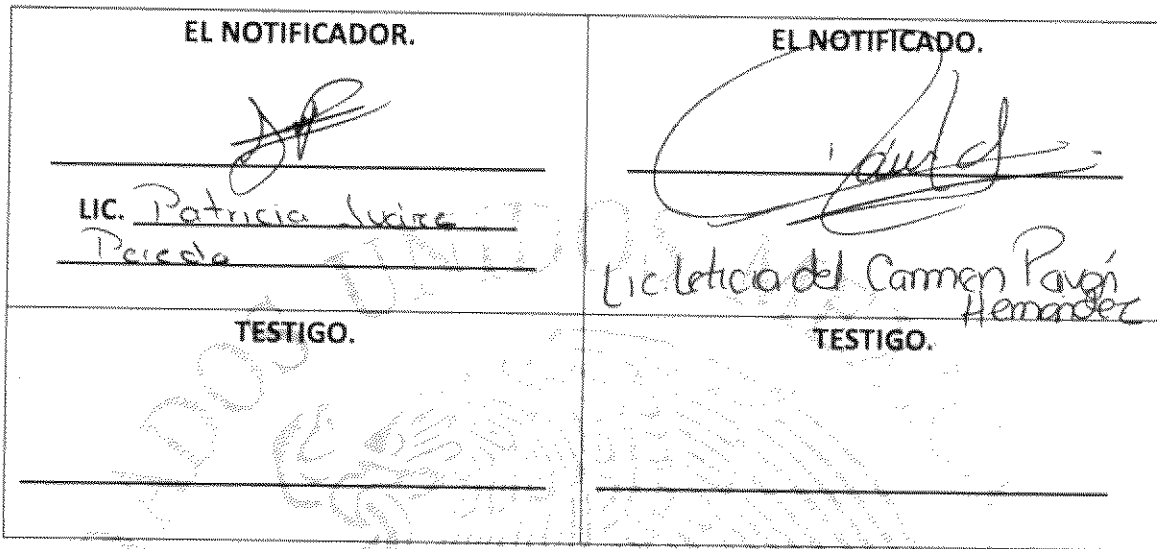 EL NOTIFICADOR.
EL NOTIFICADO.
LIC. Patricia
Lic Leticia del Carmen Pavón
Hernández
TESTIGO.
TESTIGO.
UNIDOS